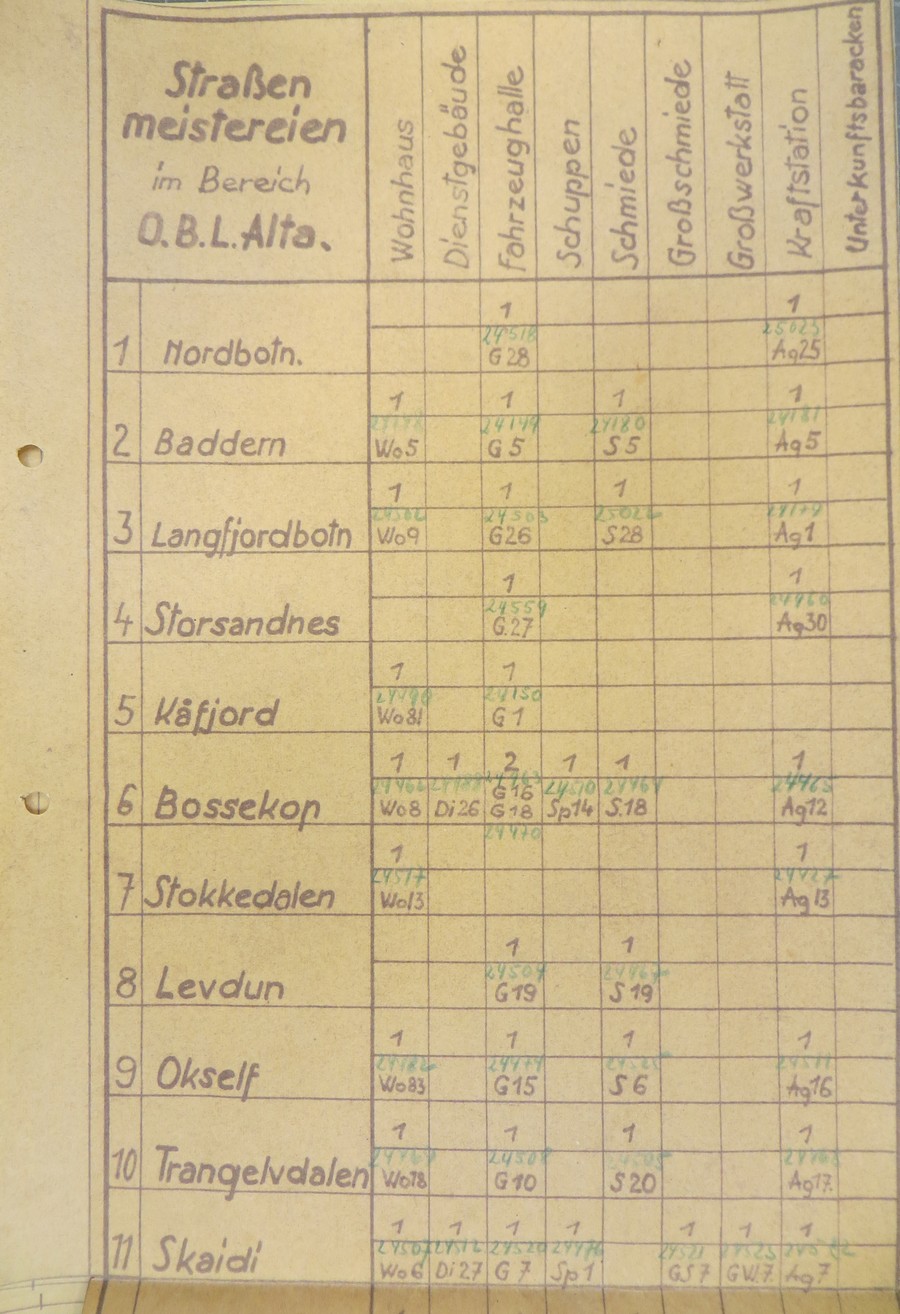 Straßen
meistereien
im Bereich
O.B.L. Alta.
Wohnhaus
Dienstgebäude
Fahrzeughalle
Schuppen
Schmiede
Großschmiede
Großwerkstatt
Kraftstation
Unterkunftsbaracken
1 1
24518 25023
1 Nordbotn. G28 Ag25
1 1 1 1
24149 24180 24181
2 Baddern Wo5 G5 S5 Ag5
1 1 1 1
24503 25022
3 Langfjordbotn Wo9 G26 S28 Ag1
1 1
24559 24460
4 Storsandnes G.27 Ag30
1 1
24490 24150
5 Kåfjord Wo81 G1
1 1 2 1 1 1
24510 24464 24465
G16
6 Bossekop Wo8 Di26 G18 Sp14 S.18 Ag12
24470
1 1
24517 24427
7 Stokkedalen Wo13 Ag13
1 1
24509
8 Levdun G19 S19
1 1 1 1
24474
9 Okself Wo83 G15 S6 Ag16
1 1 1 1
24508
10 Trangelvdalen Wo78 G10 S20 Ag17.
1 1 1 1 1 1 1
24507 24512 24520 24476 24521 24523
11 Skaidi Wo6 Di27 G7 Sp1 GS7 GW.7 Ag7